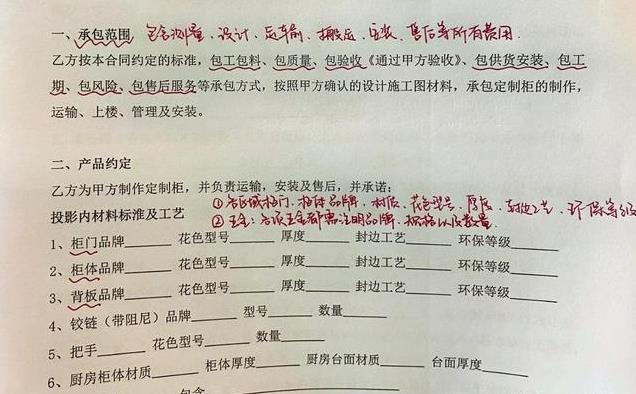 一、承包范围，包含测量、设计、定制、搬运、安装、售后等所有费用.
乙方按本合同约定的标准，包工包料、包质量、包验收《通过甲方验收》、包供货安装、包工
期、包风险、包售后服务等承包方式，按照甲方确认的设计施工图材料，承包定制柜的制作，
运输、上楼、管理及安装。
二、产品约定
乙方为甲方制作定制柜，并负责运输，安装及售后，并承诺：
①各区域柜门、柜体品牌、材质、花色型号、厚度、封边工艺、环保等级
投影内材料标准及工艺
②五金：各项五金都需注明品牌、规格以及数量.
1、柜门品牌______ 花色型号______ 厚度______ 封边工艺______ 环保等级______
2、柜体品牌______ 花色型号______ 厚度______ 封边工艺______ 环保等级______
3、背板品牌______ 花色型号______ 厚度______ 封边工艺______ 环保等级______
4、铰链（带阻尼）品牌______ 型号______ 数量______
5、把手______ 花色型号______ 数量______
6、厨房柜体材质______ 柜体厚度______ 厨房台面材质______ 台面厚度______